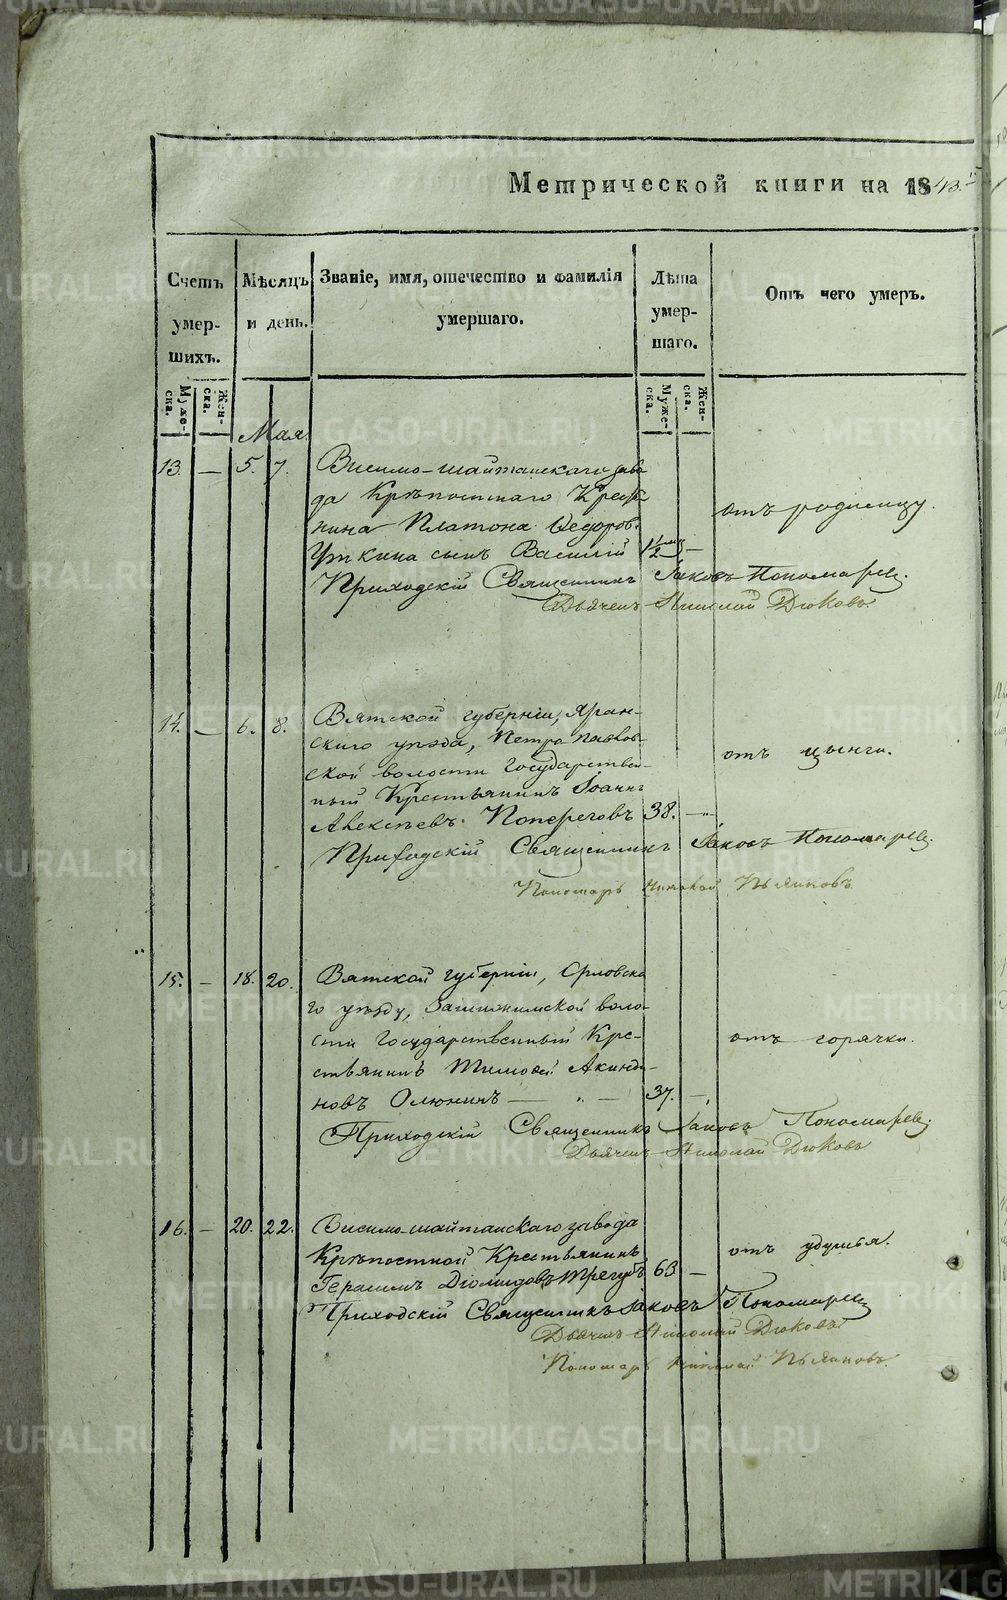 Метрической книги на 1843.
Счетъ умер- шихъ.
Мѣсяцъ и день.
Званіе, имя, отечество и фамилія
умершаго.
Лѣта умер- шаго.
Отъ чего умеръ.
Муже- ска. Жен- ска.
Муже- ска. Жен- ска.
Мая.
13. — 5. 7. Висимо-шайтанскаго заво
да Крѣпостнаго Крестья
нина Платона Ѳедоров.
отъ родимцу.
Уткина сынъ Василій 1/2 —
Приходскій Священникъ Іаковъ Пономаревъ.
Дьячекъ Николай Дюковъ
14. — 6. 8. Вятской губерніи, Яран-
скаго уѣзда, Петропавлов-
ской волости Государствен-
отъ цынги.
ный Крестьянинъ Іоаннъ
Алексѣевъ Попереговъ 38. —
Приходскій Священникъ Іаковъ Пономаревъ.
Пономарь Николай Пьянковъ
15. — 18. 20. Вятской губерніи, Орловска
го уѣзду, волос-
сти Государственный Кре-
отъ горячки.
стьянинъ Тимоѳей Акинди-
новъ Олюнинъ — 37. —
Приходскій Священникъ Іаковъ Пономаревъ.
Дьячекъ Николай Дюковъ
16. — 20. 22. Висимо-шайтанскаго завода
Крѣпостной Крестьянинъ
отъ удушья.
Герасимъ Діомидовъ Трегубъ 63 —
Приходскій Священникъ Іаковъ Пономаревъ
Дьячекъ Николай Дюковъ
Пономарь Николай Пьянковъ.
METRIKI.GASO-URAL.RU